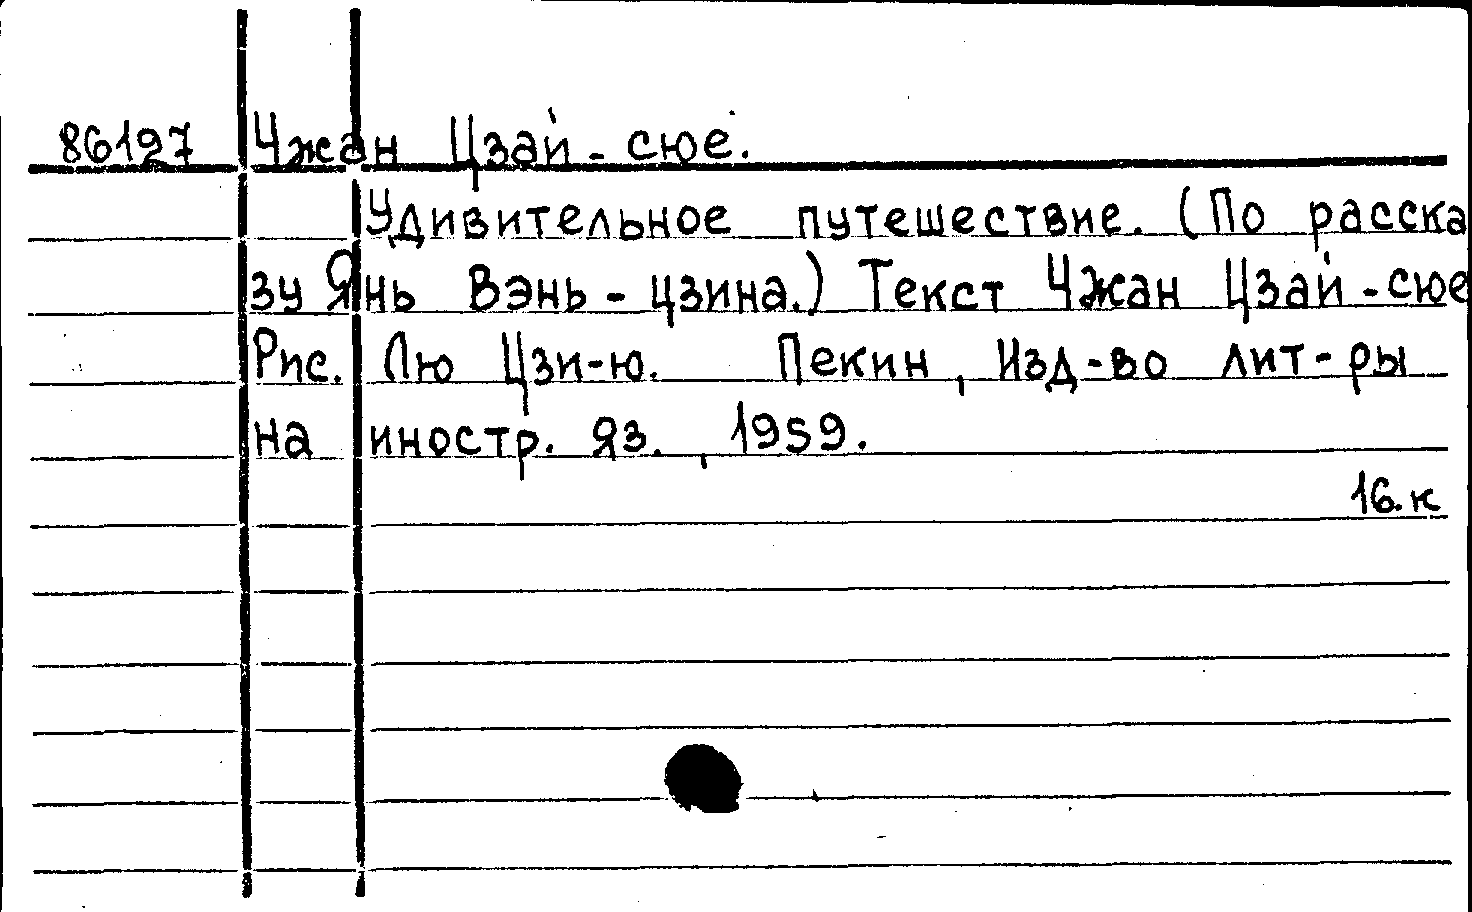 86197 Чжан Цзай-сюе.
Удивительное путешествие. (По расска
зу Янь Вэнь-цзина.) Текст Чжан Цзай-сюе
Рис. Лю Цзи-ю. Пекин, Изд-во лит-ры
на иностр. яз., 1959.
16.к